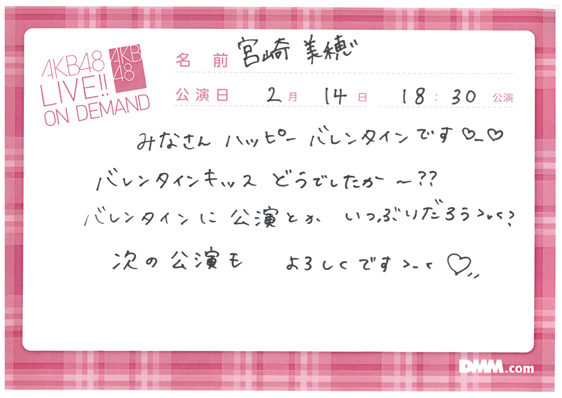 AKB48
LIVE!!
ON DEMAND
AKB
48
名前 宮崎 美穂
公演日 2月 14日 18:30 公演
みなさん ハッピー バレンタインです♡_♡
バレンタインキッス どうでしたか〜??
バレンタインに 公演とか いつぶりだろう>_<?
次の公演も よろしくです>_<♡
DMM.com